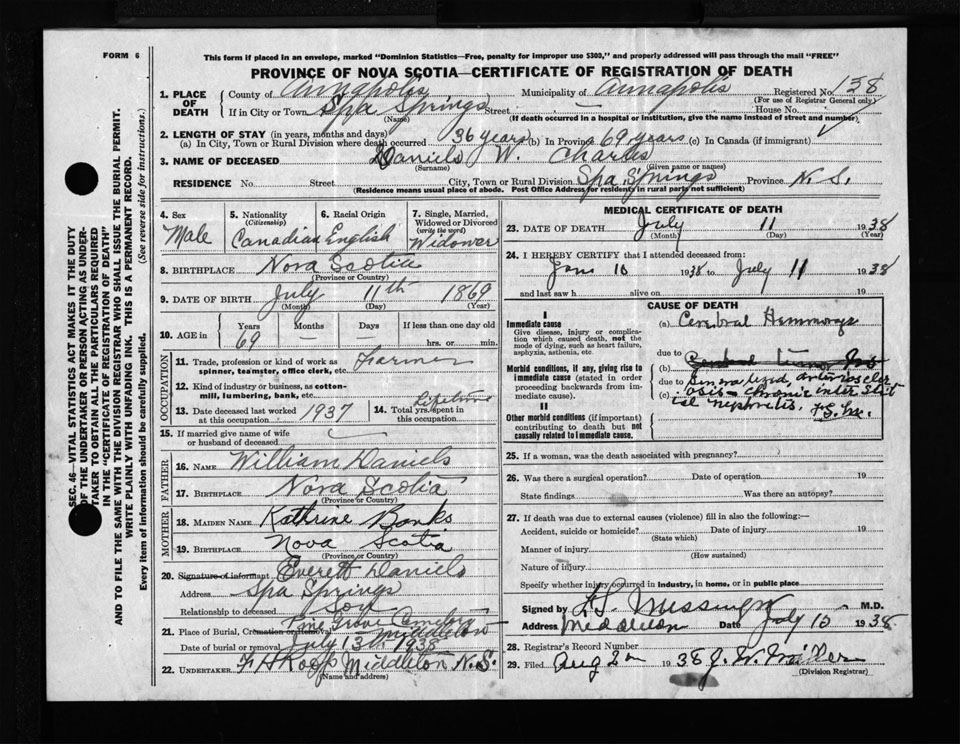 FORM 6
This form if placed in an envelope, marked "Dominion Statistics—Free, penalty for improper use $300," and properly addressed will pass through the mail "FREE"
PROVINCE OF NOVA SCOTIA—CERTIFICATE OF REGISTRATION OF DEATH
1. PLACE OF DEATH County of Annapolis Municipality of Annapolis Registered No. 138
(For use of Registrar General only)
If in City or Town Spa Springs Street — House No.
(Name) (If death occurred in a hospital or institution, give the name instead of street and number)
2. LENGTH OF STAY (in years, months and days)
(a) In City, Town or Rural Division where death occurred 36 years (b) In Province 69 years (c) In Canada (if immigrant)
3. NAME OF DECEASED Daniels W. Charles
(Surname) (Given name or names)
RESIDENCE No. Street City, Town or Rural Division Spa Springs Province N.S.
(Residence means usual place of abode. Post Office Address for residents in rural parts not sufficient)
4. Sex Male
5. Nationality (Citizenship) Canadian
6. Racial Origin English
7. Single, Married, Widowed or Divorced (write the word) Widower
8. BIRTHPLACE Nova Scotia
(Province or Country)
9. DATE OF BIRTH July 11th 1869
(Month) (Day) (Year)
10. AGE in Years 69 Months — Days — If less than one day old hrs. or min.
OCCUPATION
11. Trade, profession or kind of work as spinner, teamster, office clerk, etc. Farmer
12. Kind of industry or business, as cotton-mill, lumbering, bank, etc.
13. Date deceased last worked at this occupation 1937
14. Total yrs. spent in this occupation Lifetime
15. If married give name of wife or husband of deceased
FATHER
16. NAME William Daniels
17. BIRTHPLACE Nova Scotia
(Province or Country)
MOTHER
18. MAIDEN NAME Kathrine Banks
19. BIRTHPLACE Nova Scotia
(Province or Country)
20. Signature of informant Everett Daniels
Address Spa Springs
Relationship to deceased Son
21. Place of Burial, Cremation or Removal Pine Grove Cemetery Middleton
Date of burial or removal July 13th 1938
22. UNDERTAKER F H Roop Middleton N.S.
(Name and address)
MEDICAL CERTIFICATE OF DEATH
23. DATE OF DEATH July 11 1938
(Month) (Day) (Year)
24. I HEREBY CERTIFY that I attended deceased from:
June 10 1938 to July 11 1938
and last saw h alive on 19
CAUSE OF DEATH
I
Immediate cause
Give disease, injury or complication which caused death, not the mode of dying, such as heart failure, asphyxia, asthenia, etc.
(a) Cerebral Hemmorage
due to
Morbid conditions, if any, giving rise to immediate cause (stated in order proceeding backwards from immediate cause)
(b)
due to Generalized, arteriosclerosis
(c) chronic interstitial nephritis,
II
Other morbid conditions (if important) contributing to death but not causally related to immediate cause.
25. If a woman, was the death associated with pregnancy?
26. Was there a surgical operation? Date of operation 19
State findings Was there an autopsy?
27. If death was due to external causes (violence) fill in also the following:—
Accident, suicide or homicide? Date of injury 19
(State which)
Manner of injury
(How sustained)
Nature of injury
Specify whether injury occurred in industry, in home, or in public place
Signed by L.S. Messinger M.D.
Address Middleton Date July 15 1938
28. Registrar's Record Number
29. Filed Aug 2 1938 J. W. Miller
(Division Registrar)
SEC. 46—VITAL STATISTICS ACT MAKES IT THE DUTY
OF THE UNDERTAKER OR PERSON ACTING AS UNDER-
TAKER TO OBTAIN ALL THE PARTICULARS REQUIRED
IN THE "CERTIFICATE OF REGISTRATION OF DEATH"
AND TO FILE THE SAME WITH THE DIVISION REGISTRAR WHO SHALL ISSUE THE BURIAL PERMIT.
WRITE PLAINLY WITH UNFADING INK. THIS IS A PERMANENT RECORD.
Every item of information should be carefully supplied. (See reverse side for instructions.)